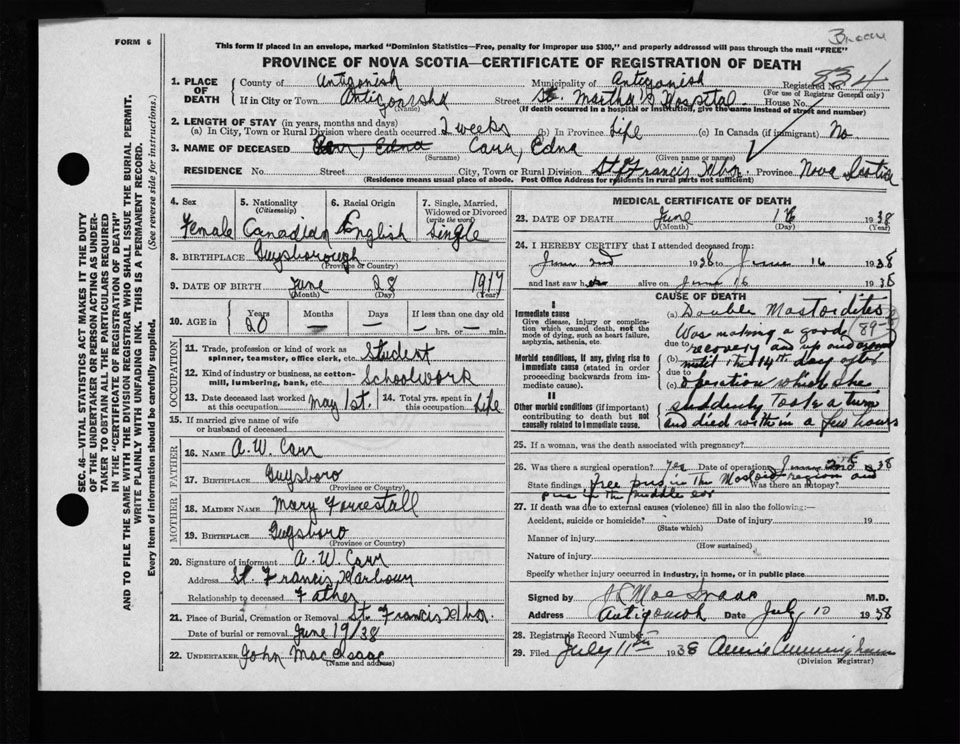 Breau
FORM 6
This form if placed in an envelope, marked "Dominion Statistics—Free, penalty for improper use $300," and properly addressed will pass through the mail "FREE"
PROVINCE OF NOVA SCOTIA—CERTIFICATE OF REGISTRATION OF DEATH
834
1. PLACE OF DEATH
County of Antigonish Municipality of Antigonish Registered No.
(For use of Registrar General only)
If in City or Town Antigonish Street St. Martha's Hospital House No.
(Name)
(If death occurred in a hospital or institution, give the name instead of street and number)
2. LENGTH OF STAY (in years, months and days)
(a) In City, Town or Rural Division where death occurred 2 weeks (b) In Province Life (c) In Canada (if immigrant) No
3. NAME OF DECEASED Carr, Edna Carr, Edna
(Surname) (Given name or names)
RESIDENCE No. Street City, Town or Rural Division St. Francis Hbor. Province Nova Scotia
(Residence means usual place of abode. Post Office Address for residents in rural parts not sufficient)
4. Sex Female
5. Nationality (Citizenship) Canadian
6. Racial Origin English
7. Single, Married, Widowed or Divorced (write the word) Single
8. BIRTHPLACE Guysborough
(Province or Country)
9. DATE OF BIRTH June 28 1917
(Month) (Day) (Year)
10. AGE in Years Months Days If less than one day old
20 — — hrs. or min.
OCCUPATION
11. Trade, profession or kind of work as spinner, teamster, office clerk, etc. Student
12. Kind of industry or business, as cotton-mill, lumbering, bank, etc. Schoolwork
13. Date deceased last worked at this occupation May 1st. 14. Total yrs. spent in this occupation Life
15. If married give name of wife or husband of deceased
FATHER
16. Name A. W. Carr
17. Birthplace Guysboro
(Province or Country)
MOTHER
18. Maiden Name Mary Forrestall
19. Birthplace Guysboro
(Province or Country)
20. Signature of informant A. W. Carr
Address St. Francis Harbour
Relationship to deceased Father
21. Place of Burial, Cremation or Removal St. Francis Hbor.
Date of burial or removal June 19/38
22. Undertaker John MacIsaac
(Name and address)
MEDICAL CERTIFICATE OF DEATH
23. DATE OF DEATH June 16 1938
(Month) (Day) (Year)
24. I HEREBY CERTIFY that I attended deceased from:
June 2nd 1938 to June 16 1938
and last saw her alive on June 16 1938
CAUSE OF DEATH
I
Immediate cause
Give disease, injury or complication which caused death, not the mode of dying, such as heart failure, asphyxia, asthenia, etc.
Morbid conditions, if any, giving rise to immediate cause (stated in order proceeding backwards from immediate cause).
II
Other morbid conditions (if important) contributing to death but not causally related to immediate cause.
(a) Double Mastoiditis
89
Was making a good
due to recovery and up and around
(b) until the 14th day after
due to
(c) operation which she
suddenly took a turn
and died within a few hours
25. If a woman, was the death associated with pregnancy?
26. Was there a surgical operation? Yes Date of operation June 2nd 1938
State findings Free pus in the Mastoid region and Was there an autopsy?
pus in the middle ear
27. If death was due to external causes (violence) fill in also the following:—
Accident, suicide or homicide? Date of injury 19
(State which)
Manner of injury
(How sustained)
Nature of injury
Specify whether injury occurred in industry, in home, or in public place
Signed by MacIsaac M.D.
Address Antigonish Date July 10 1938
28. Registrar's Record Number
29. Filed July 11th 1938 Annie Cunningham
(Division Registrar)
SEC. 46—VITAL STATISTICS ACT MAKES IT THE DUTY
OF THE UNDERTAKER OR PERSON ACTING AS UNDER-
TAKER TO OBTAIN ALL THE PARTICULARS REQUIRED
IN THE "CERTIFICATE OF REGISTRATION OF DEATH"
AND TO FILE THE SAME WITH THE DIVISION REGISTRAR WHO SHALL ISSUE THE BURIAL PERMIT.
WRITE PLAINLY WITH UNFADING INK. THIS IS A PERMANENT RECORD.
Every item of information should be carefully supplied. (See reverse side for instructions.)